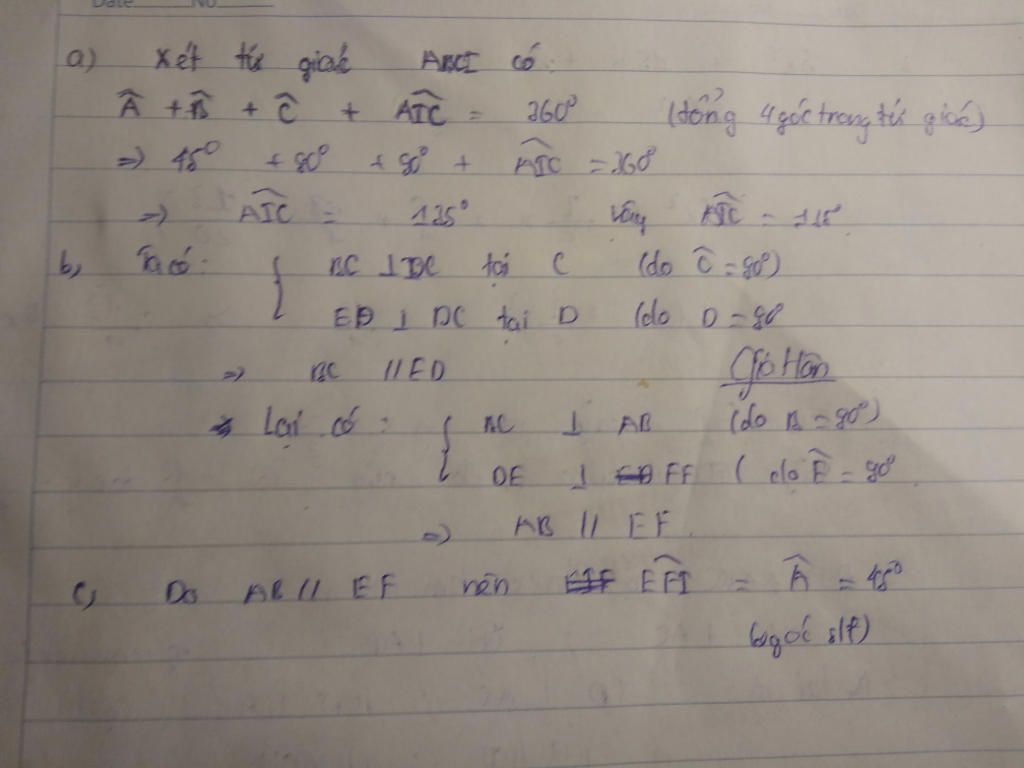 Date No
a) Xét tứ giác ABCI có:
Â + B̂ + Ĉ + AIC^ = 360° (tổng 4 góc trong tứ giác)
=> 45° + 90° + 90° + AIC^ = 360°
=> AIC^ = 135° Vậy AIC^ = 135°
b, Ta có: { BC ⊥ DC tại C (do Ĉ = 90°)
ED ⊥ DC tại D (do D = 90°
=> BC // ED
Gò Hân
Lại có: { BC ⊥ AB (do B = 90°)
DE ⊥ EF (do Ê = 90°
=> AB // EF.
c, Do AB // EF nên EFI^ = Â = 45°
(2 góc slt)